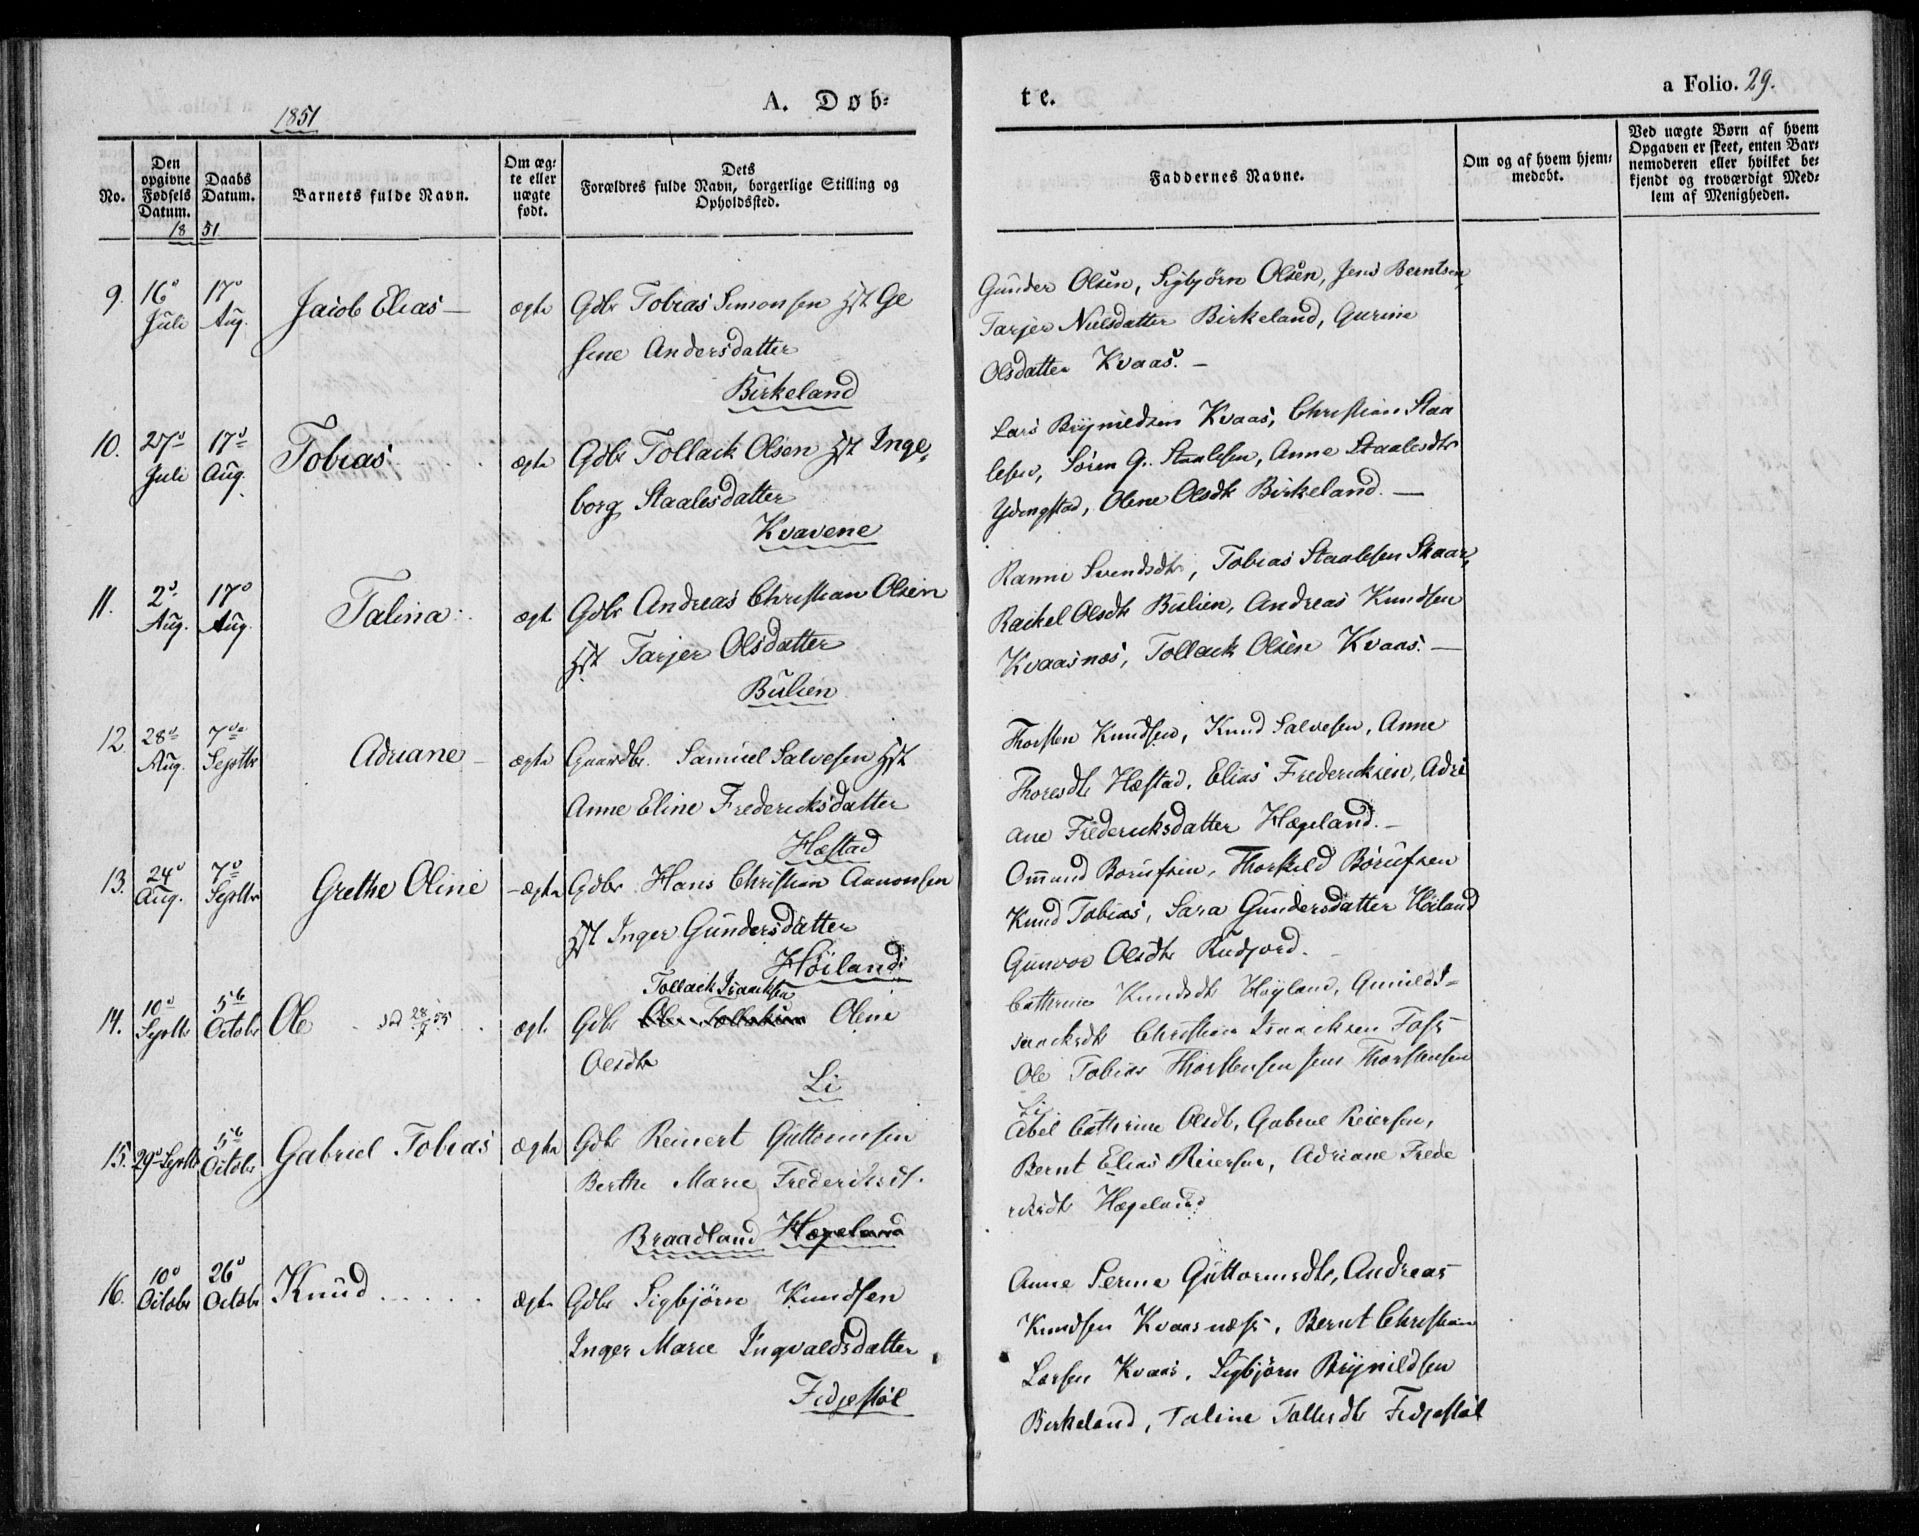 1851
A. Døb-
te.
a Folio. 29.
No.
Den opgivne Fødsels Datum.
Daabs Datum.
Barnets fulde Navn.
Om ægte eller uægte født.
Dets Forældres fulde Navn, borgerlige Stilling og Opholdssted.
Faddernes Navne.
Om og af hvem hjemmedøbt.
Ved uægte Børn af hvem Opgaven er skeet, enten Barnemoderen eller hvilket bekjendt og troværdigt Medlem af Menigheden.
18 51
9. 16d Juli 17d Aug. Jacob Elias — ægte
Gdbr Tobias Simonsen Hst Ge
sine Andersdatter
Birkeland
Gunder Olsen, Sigbjørn Olsen, Jens Berntsen,
Tarjer Nielsdatter Birkeland, Gurine
Olsdatter Kvaas. —
10. 27d Juli 17d Aug. Tobias ægte
Gdbr Tollack Olsen Hst Inge,
borg Staalesdatter
Kvavene
Lars Brynildsen Kvaas, Christian Staa
lesen, Søren G. Staalesen, Anne Staalesdtr
Olene Olsdtr Birkeland. —
11. 2d Aug. 17d Aug. Talina ægte
Gdbr Andreas Christian Olsen
Hst Tarjer Olsdatter
Bulien
Ranni Svendsdtr, Tobias Staalesen Skaar,
Rachel Olsdtr Bulien, Andreas Knudsen
Kvaasnæs, Tollack Olsen Kvaas. —
12. 28d Aug. 7de Septbr Adriane — ægte
Gaardbr. Samuel Salvesen Hst
Anne Eline Fredericksdatter
Hæstad
Thorsten Knudsen, Knud Salvesen, Anne
Thoresdtr Hæstad, Elias Fredericksen, Adri
ane Fredericksdatter Hægeland. —
13. 24d Aug. 7d Septbr Grethe Oline — ægte
Gdbr Hans Christian Aanonsen
Hst Inger Gundersdatter
Høiland
Omund Børufsen, Thorkild Børufsen
Knud Tobias, Sara Gundersdatter Høiland
Gunvor Olsdtr Rudjord.
14. 10d Septbr 5te Octobr Ole død 28/7 55 ægte
Tollack Isaacksen
Gdbr Olene
Olsdtr
Li
Cathrine Knudsdtr Høyland, Gunild I-
saacksdtr Christian Isaacksen Foss
Ole Tobias Thorstensen Jens Thorstensen
Li
15. 29d Septbr 5te Octobr Gabriel Tobias ægte
Gdbr Reinert Guttormsen
Berthe Marie Fredriksdt.
Braadland Hægeland
Abel Cathrine Olsdt, Gabriel Reiersen,
Bernt Elias Reiersen, Adriane Frede
riksdtr Hægeland
16. 10d Octobr 26d Octobr Knud ægte
Gdbr Sigbjørn Knudsen
Inger Marie Ingvaldsdatter
Fidjestøl
Anne Serine Guttormsdtr, Andreas
Knudsen Kvaasnæs, Bernt Christian
Larsen Kvaas, Sigbjørn Brynildsen
Birkeland, Taline Tallesdtr Fidjestøl